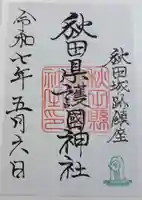 秋田城跡鎮座
秋田県護國神社
秋田縣
社之印
令和七年五月六日